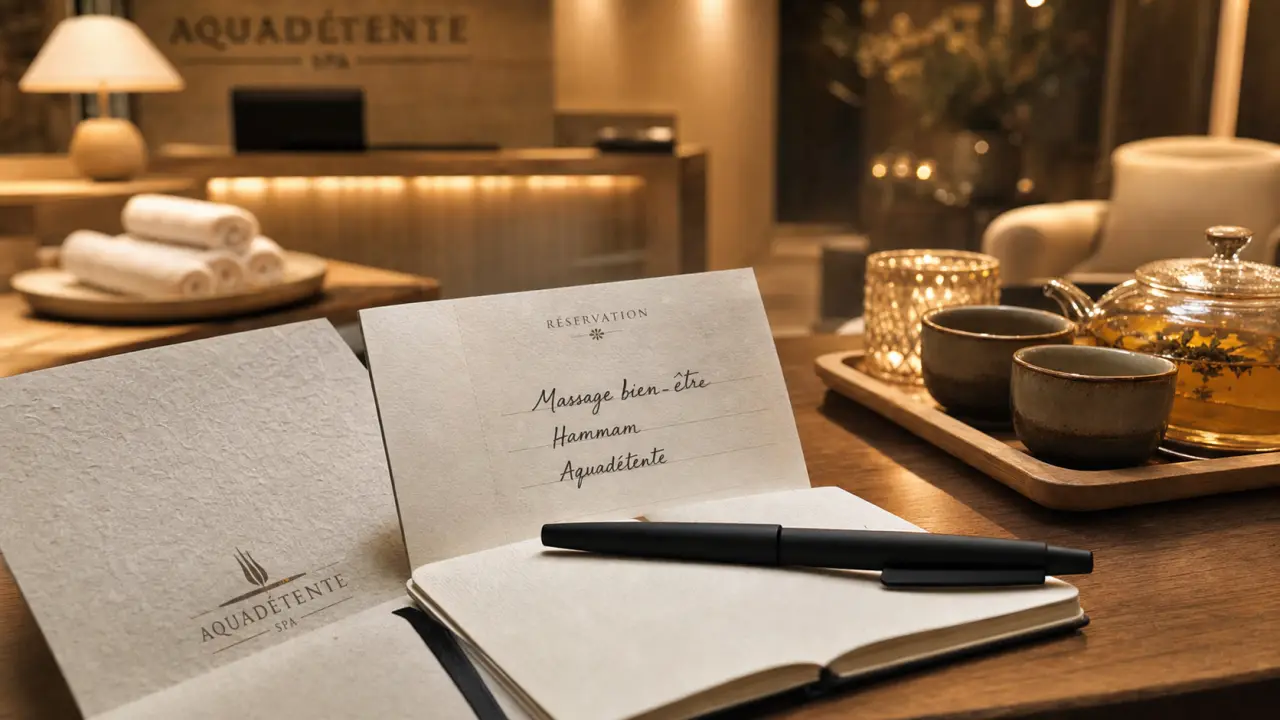 AQUADÉTENTE
SPA
RÉSERVATION
Massage bien-être
Hammam
Aquadétente
AQUADÉTENTE
SPA